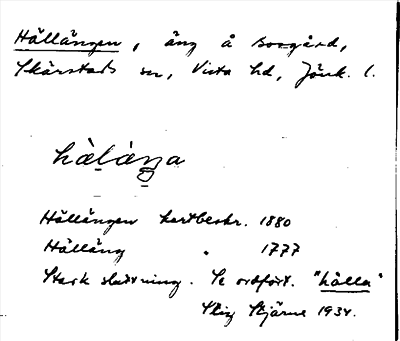 Hällängen, äng å Boogård,
Skärstads sn, Vista hd, Jönk. l.
Hällängen kartbeskr. 1880
Hälläng " 1777
Stark sluttning. Se ordfört. "hälla"
Stig Stjärne 1934.